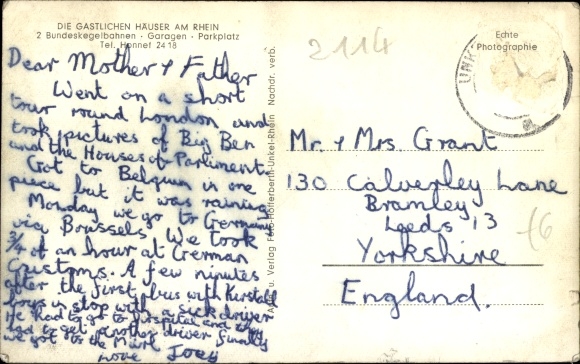 DIE GASTLICHEN HÄUSER AM RHEIN
2 Bundeskegelbahnen · Garagen · Parkplatz
Tel. Honnef 24 18
Dear Mother + Father
Went on a short
tour round London and
took pictures of Big Ben
and the Houses of Parliment.
Got to Belgium in one
piece but it was raining
Monday we go to Germany
via Brussels. We took
3/4 of an hour at German
Customs. A few minutes
after the first bus with
boys in stop with a sick driver
He had to go to hospital and they
had to get another driver finally
we got to the
love Joey
Foto-Hofferberth-Unkel-Rhein Nachdr. verb.
2114
Echte
Photographie
UNK
Mr. + Mrs. Grant
130 Calverley Lane
Bramley
Leeds 13
Yorkshire
England.